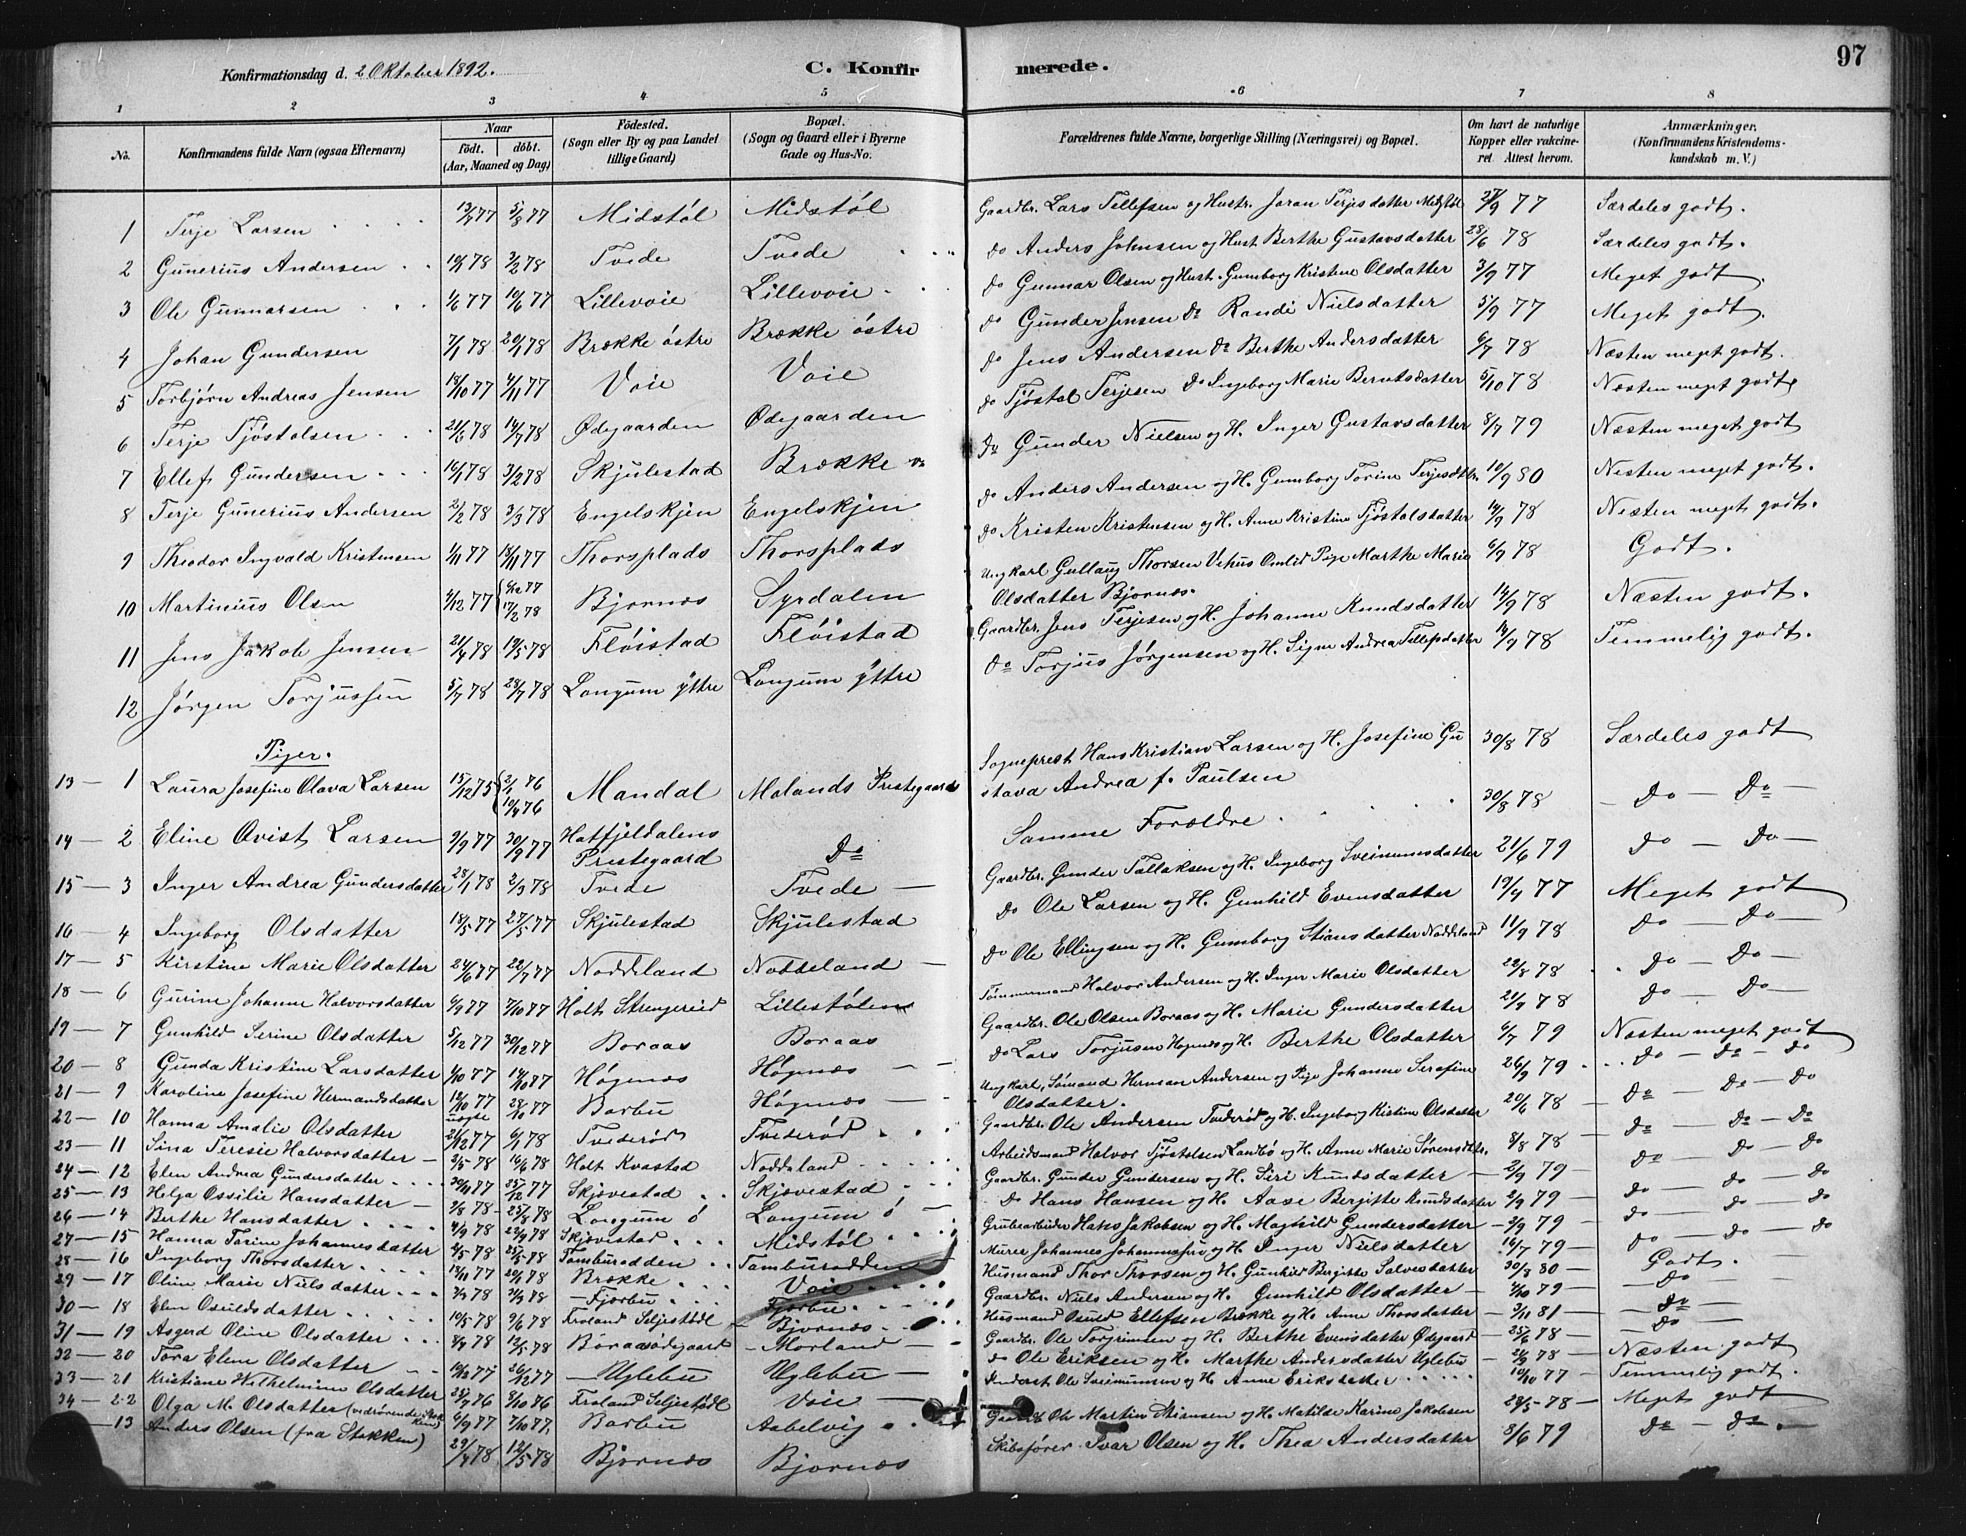 Konfirmationsdag d. 2 Oktober 1892.
C. Konfirmerede.
97
1 2 3 4 5 6 7 8
No.
Konfirmandens fulde Navn (ogsaa Efternavn)
Naar
födt. döbt.
(Aar, Maaned og Dag)
Födested.
(Sogn eller By og paa Landet
tillige Gaard)
Bopæl.
(Sogn og Gaard eller i Byerne
Gade og Hus-No.
Forældrenes fulde Navne, borgerlige Stilling (Næringsvei) og Bopæl.
Om havt de naturlige
Kopper eller vakcine-
ret. Attest herom.
Anmærkninger.
(Konfirmandens Kristendoms-
kundskab m. V.)
1 Terje Larsen 77 5/8 77 Midstøl Midstøl Gaardbr. Lars Tellefsen og Hustr. Joran Terjesdatter Midstøl 77 Særdeles godt.
2 Gunerius Andersen 78 3/2 78 Tvede Tvede Do Anders Johnsen og Hust. Berthe Gustavsdatter 28/6 78 Særdeles godt.
3 Ole Gunnarsen 1/6 77 10/6 77 Lillevoie Lillevoie Do Gunnar Olsen og Hust. Gunborg Kristine Olsdatter 3/9 77 Meget godt
4 Johan Gundersen 7/1 78 20/1 78 Brække østre Brække østre Do Gunder Jensen Do Randi Nielsdatter 5/9 77 Meget godt.
5 Torbjørn Andreas Jensen 18/10 77 4/11 77 Voie Voie Do Jens Andersen Do Berthe Andersdatter 6/7 78 Næsten meget godt.
6 Terje Tjøstolsen 21/6 78 14/7 78 Ødegaarden Ødegaarden Do Tjøstol Terjesen Do Ingeborg Marie Berntsdatter 5/10 78 Næsten meget godt
7 Ellef Gundersen 16/1 78 3/2 78 Skjulestad Brække Do Gunder Nielsen og H. Inger Gustavsdatter 8/7 79 Næsten meget godt
8 Terje Gunerius Andersen 2/2 78 3/3 78 Engelskjen Engelskjen Do Anders Andersen og H. Gunborg Torine Terjesdtr. 10/9 80 Næsten meget godt.
9 Theodor Ingvald Kristensen 1/11 77 18/11 77 Thorsplads Thorsplads Do Kristen Kristensen og H. Anne Kristine Tjøstolsdatter 14/9 78 Næsten meget godt.
10 Martinius Olsen 4/12 77 { 6/12 77 17/2 78 Bjornæs Syrdalen Ungkarl Gullaug Thorsen Vehus Omlid Pige Marthe Marie
Olsdatter Bjornæs. 6/9 78 Godt.
11 Jens Jakob Jensen 21/4 78 19/5 78 Fløistad Fløistad Gaardbr. Jens Terjesen og H. Johanne Knudsdatter 14/9 78 Næsten godt.
12 Jørgen Torjussen 5/7 78 28/7 78 Longum yttre Longum yttre Do Torjus Jørgensen og H. Signe Andrea Tellefsdatter 14/9 78 Temmelig godt.
Piger.
13 — 1 Laura Josefine Olava Larsen 15/12 75 { 2/1 76 10/4 76 Mandal Molands Prestegaard Sogneprest Hans Kristian Larsen og H. Josefine Gu
stava Andrea f. Paulsen 30/8 78 Særdeles godt
14 — 2 Eline Qvist Larsen 9/9 77 30/9 77 Hatfjeldalens
Prestegaard Do Samme Forældre 30/8 78 — Do — Do —
15 — 3 Inger Andrea Gundersdatter 28/1 78 2/3 78 Tvede Tvede — Gaardbr. Gunder Tallaksen og H. Ingeborg Sveinumsdatter 21/6 79 Do — Do —
16 — 4 Ingeborg Olsdatter 18/5 77 27/5 77 Skjulestad Skjulestad Do Ole Larsen og H. Gunhild Evensdatter 19/9 77 Meget godt
17 — 5 Kirstine Marie Olsdatter 24/6 77 22/7 77 Noddeland Noddeland — Do Ole Ellingsen og H. Gunborg Stiansdatter Noddeland 11/9 78 Do — Do —
18 — 6 Gurine Johanne Halvorsdatter 6/9 77 7/10 77 Holt Strengereid Lillestølen Tømmermand Halvor Andersen og H. Inger Marie Olsdatter 22/8 78 Do — Do —
19 — 7 Gunhild Serine Olsdatter 5/12 77 30/12 77 Boraas Boraas Gaardbr. Ole Olsen Boraas og H. Marie Gundersdatter 21/9 78 Do — Do —
20 — 8 Gunda Kristine Larsdatter 1/10 77 14/10 77 Høgnæs Høgnæs — Do Lars Torjusen Høgnæs og H. Berthe Olsdatter 6/7 79 Næsten meget godt
21 — 9 Karoline Josefine Hermandsdatter 12/10 77 uægte 28/10 77 Barbu Høgnæs — Ungkarl, Sømand Herman Andersen og Pige Johanne Serafine
Olsdatter. 26/9 79 Do — Do — Do
22 — 10 Hanna Amalie Olsdatter 21/12 77 6/1 78 Tveterød Tveterød Gaardbr. Ole Andersen Tveterød og H. Ingeborg Kistine Olsdatter 20/6 78 Do — Do — Do
23 — 11 Sina Teresie Halvorsdatter — 2/5 78 16/6 78 Holt Kvastad Noddeland Arbeidsmand Halvor Tjøstolsen Landbø og H. Anne Marie Sørensdtr. 8/8 78 Do — Do — Do
24 — 12 Elen Andrea Gundersdatter 30/11 77 25/12 77 Skjøvestad Skjøvestad Gaardbr. Gunder Gundersen og H. Siri Knudsdatter 2/9 79 Do — Do — Do
25 — 13 Helga Ossilie Hansdatter — 78 25/8 78 Longum ö Longum ö Do Hans Hansen og H. Aase Bergitte Knudsdatter 2/9 79 Do — Do — Do
26 — 14 Berthe Hansdatter 4/9 78 22/9 78 Skjøvestad Midstøl Grubearbeider Hans Jakobsen og H. Maghild Gundersdatter 2/9 79 Do — Do — Do
27 — 15 Hanna Torine Johannesdatter 4/5 78 25/5 78 Tomburodden Tomburodden Murer Johannes Johannesen og H. Inger Nielsdatter 16/7 79 Do — Do — Do
28 — 16 Ingeborg Thorsdatter 18/11 77 20/1 78 Brække Voie Husmand Thor Thorsen og H. Gunhild Bergitte Salvesdatter 30/8 80 Godt.
29 — 17 Oline Marie Nielsdatter 78 78 — Fjørbu Fjørbu Gaardbr. Niels Andersen og H. Gunhild Olsdatter 79 — Do —
30 — 18 Elen Osuldsdatter 10/5 78 9/6 78 Froland Seljestødl Bjornæs Husmand Osuld Ellefsen Brække og H. Anne Thorsdatter 3/11 81 — Do —
31 — 19 Asgerd Oline Olsdatter 78 12/5 78 Boraasødegaard — Morland — Gaardbr. Ole Torgrimsen og H. Berthe Evensdatter Ødegaard 25/6 78 — Do —
32 — 20 Tora Elene Olsdatter 77 26/12 77 — Uglebu Uglebu — Do Ole Eriksen og H. Marthe Andersdatter Uglebu 78 — Næsten godt
33 — 21 Kristiane Wilhelmine Olsdatter 76 8/10 76 Froland Seljestødl Voie Inderst Ole Sveinumsen og H. Anne Eriksdatter 10/10 77 Temmelig godt.
34 — 22 Olga M. Olsdatter (vedrørende Stokken) 6/9 77 7/10 77 Barbu Aabelvig Ole Martin Stiansen og H. Matilde Karine Jakobsen 28/5 78 — Meget godt
— 13 Anders Olsen (fra Stokken) 29/4 78 12/5 78 Bjornæs Bjornæs Skibsfører Ivar Olsen og H. Thea Andersdatter 8/6 79 Do — Do —